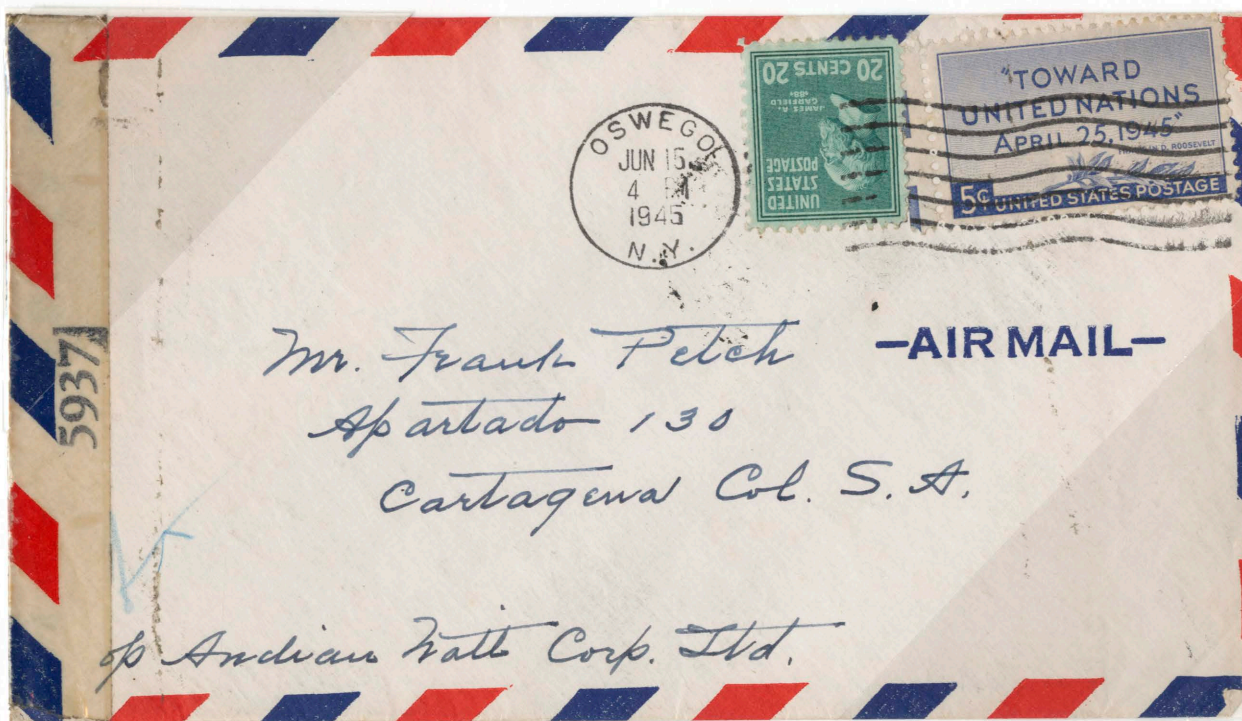 OSWEGO
JUN 15
4 PM
1945
N.Y.
20 CENTS 20
JAMES A.
GARFIELD
UNITED
STATES
POSTAGE
"TOWARD
UNITED NATIONS
APRIL 25, 1945"
FRANKLIN D. ROOSEVELT
5¢ UNITED STATES POSTAGE
—AIR MAIL—
Mr. Frank Petch
Apartado 130
Cartagena Col. S. A.
Andian Natl Corp. Ltd.
5937